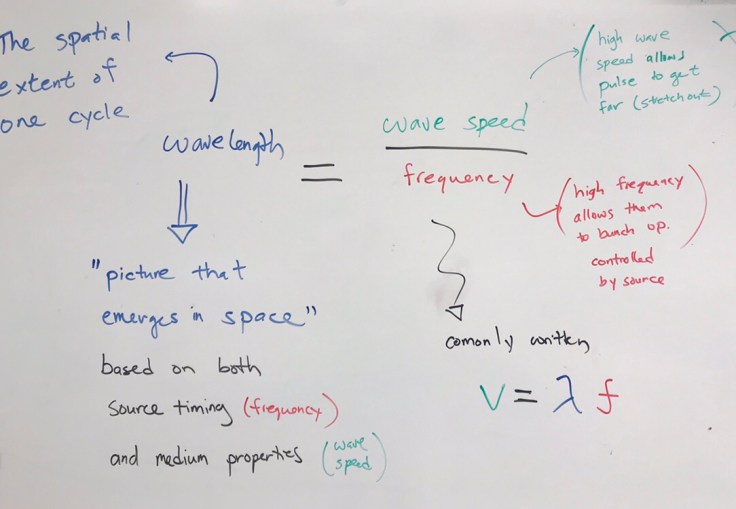 The spatial
extent of
one cycle
wavelength = wave speed
frequency
(high wave
speed allows
pulse to get
far (stretchout)
(high frequency
allows them
to bunch up.)
controlled
by source
"picture that
emerges in space"
based on both
source timing (frequency)
and medium properties (wave
speed)
comonly written
V = λ f